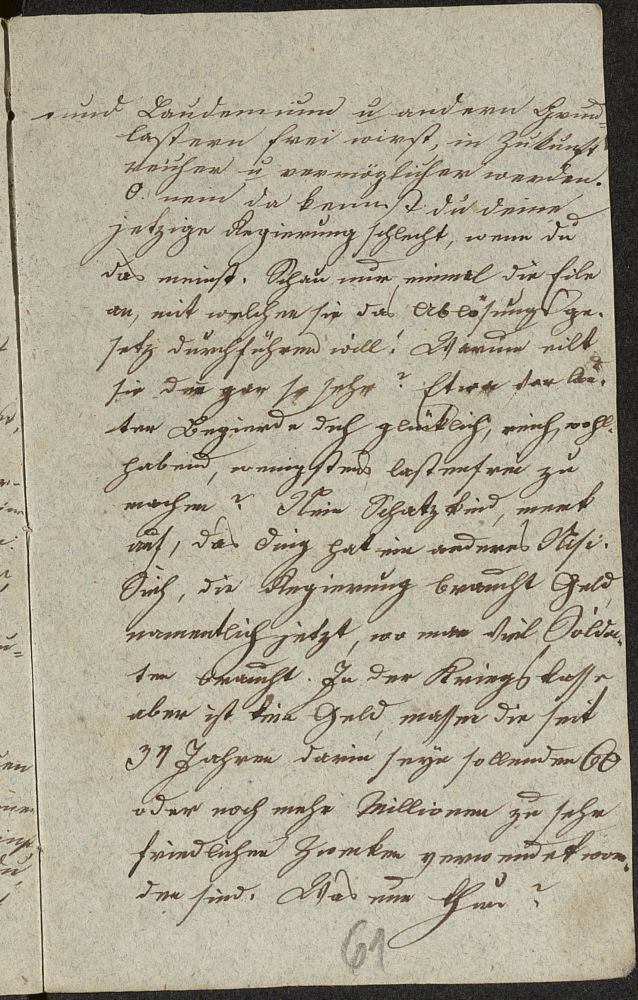 und Laudemium u. andern Grund-
lasten frei wirst, in Zukunft
reicher u. vermöglicher werden.
O nein da kennst du deine
jetzige Regierung schlecht, wenn du
das meinst. Schau nur einmal die Eile
an, mit welcher sie das Ablösungsge-
setz durchführen will! Warum eilt
sie denn gar so sehr? Etwa vor lau-
ter Begierde dich glücklich, reich, wohl-
habend, wenigstens lastenfrei zu
machen? Nein Schatzkind, merk
auf, das Ding hat ein anderes Nisi.
Sieh, die Regierung braucht Geld,
namentlich jetzt, wo man viel Solda-
ten braucht. In der Kriegskasse
aber ist kein Geld, massen die seit
31 Jahren darin seyn sollenden 60
oder noch mehr Millionen zu sehr
friedlichen Zwecken verwendet wor-
den sind. Was nun thun?
61